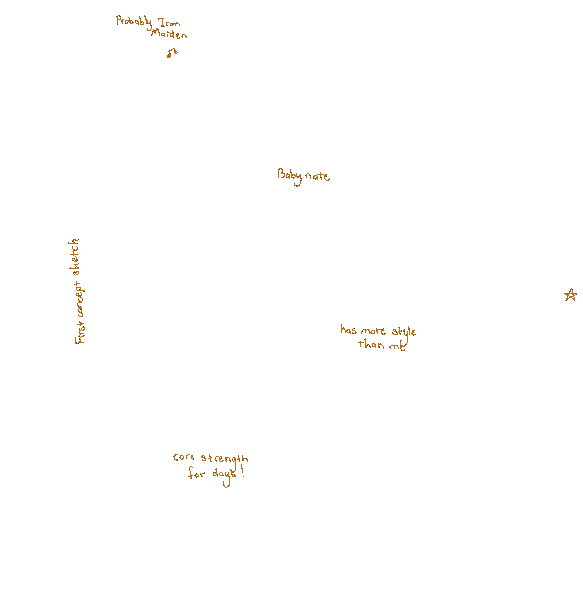 Probably Iron
Maiden
Baby note
First concept sketch
has more style
than me
core strength
for days!